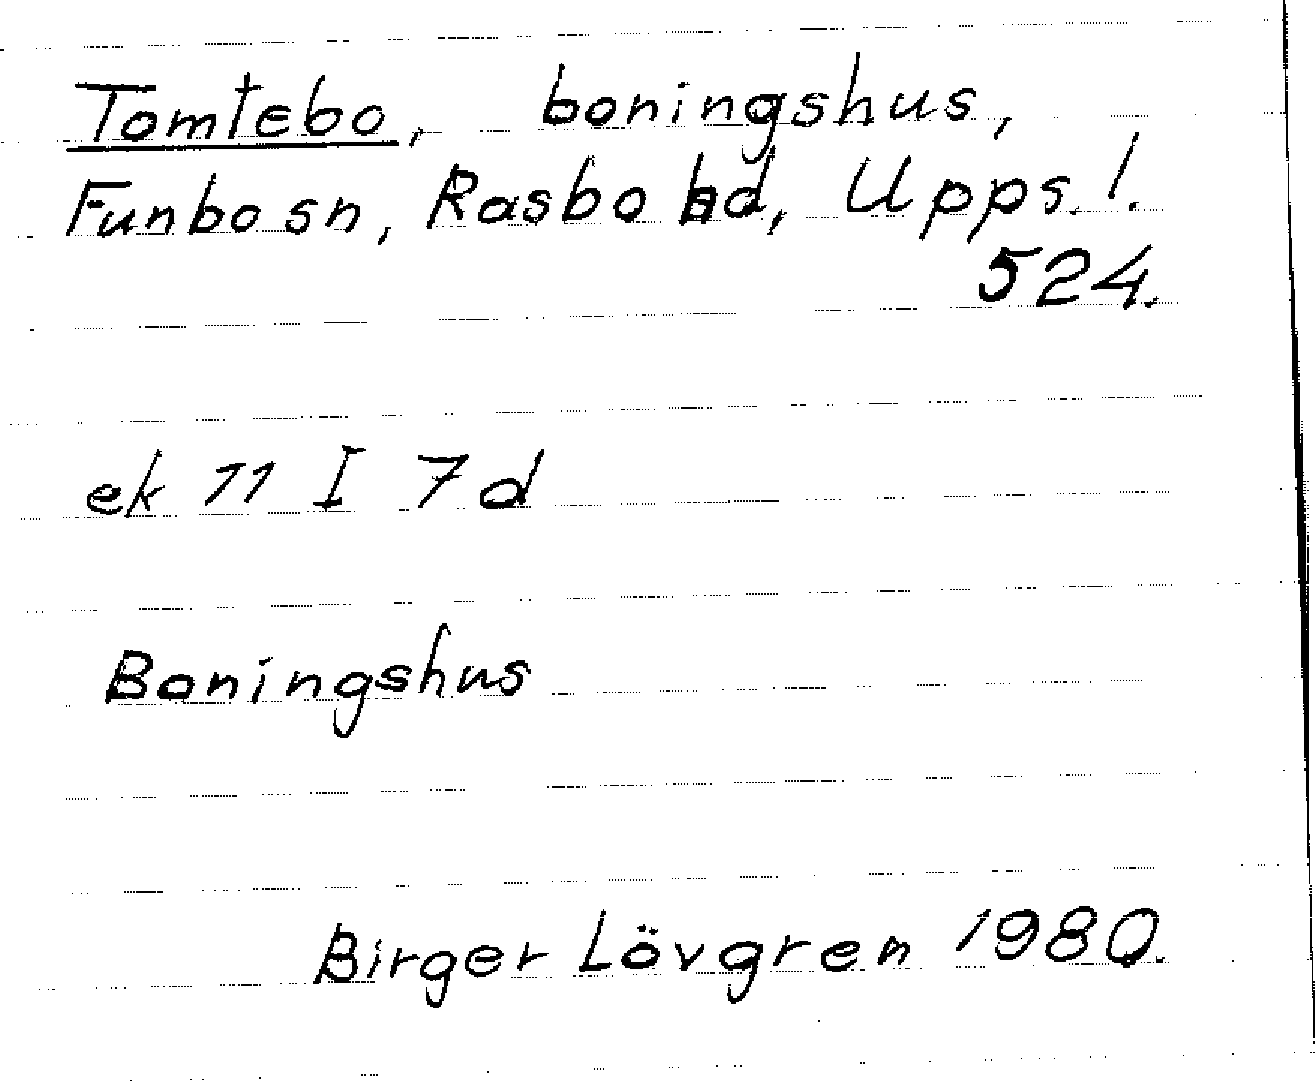 Tomtebo, boningshus,
Funbo sn, Rasbo hd, Upps. l.
524.
ek 11 I 7 d
Boningshus
Birger Lövgren 1980.